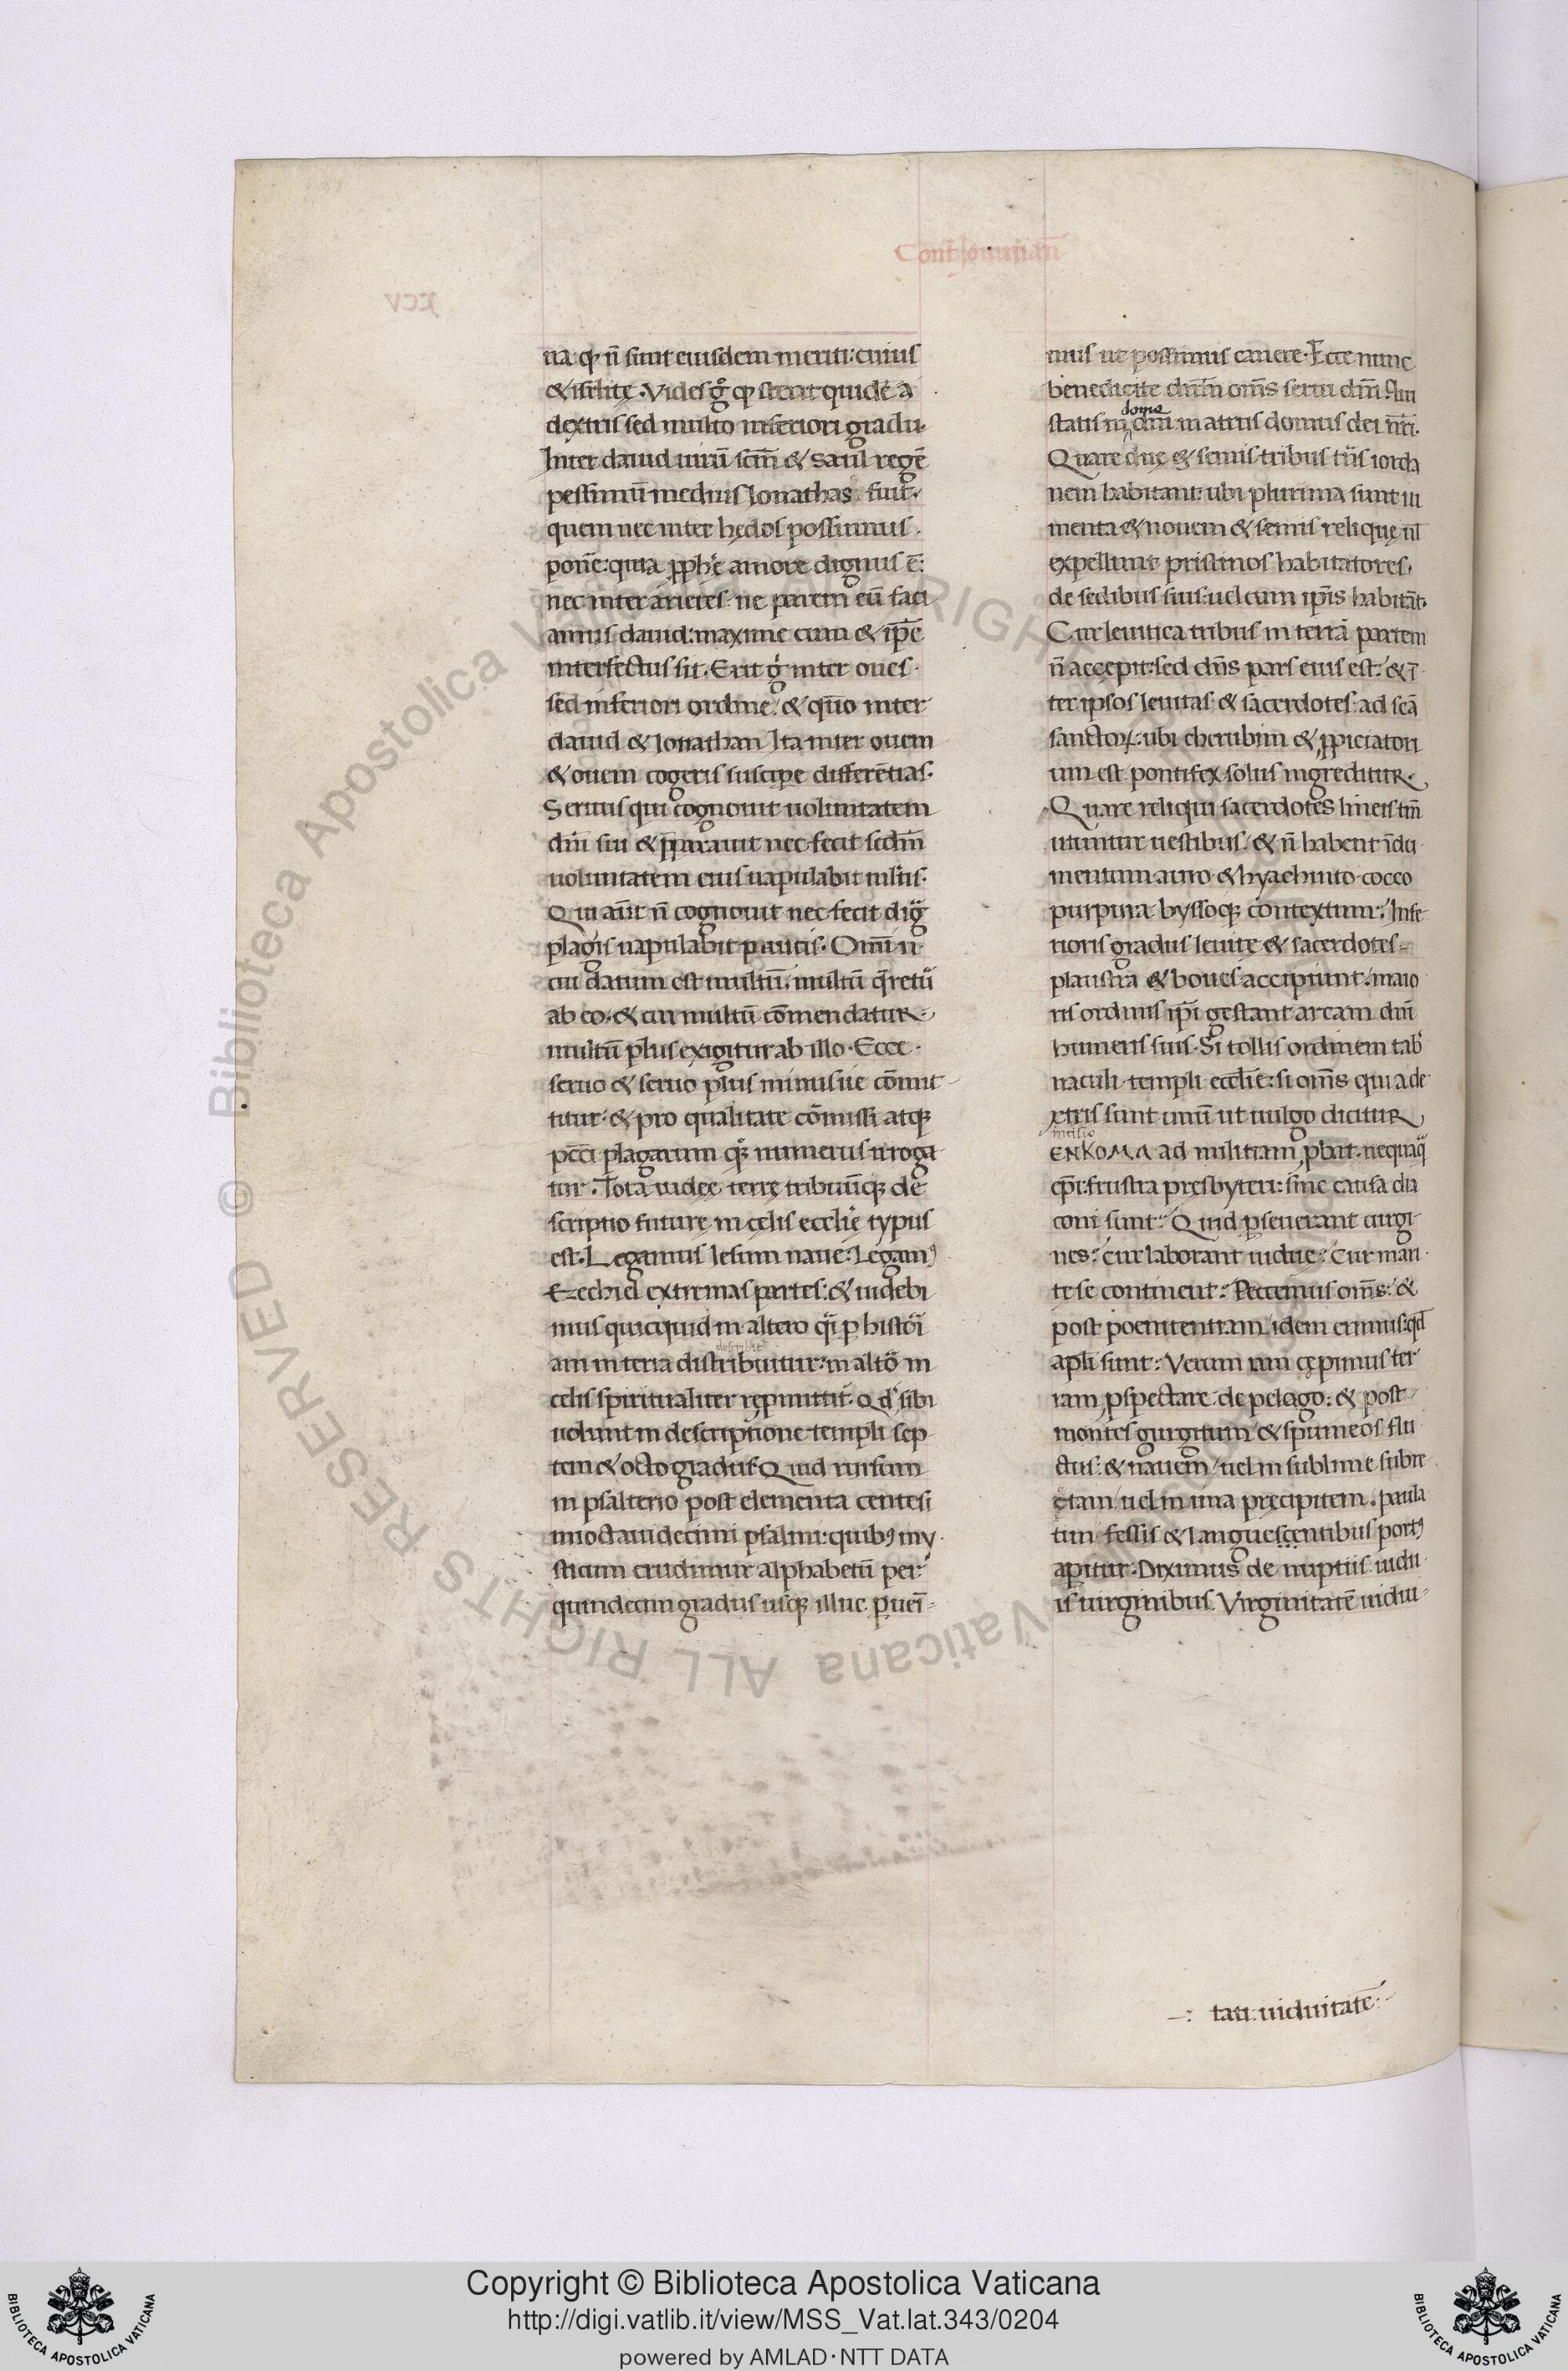 Cont̄ Iouinian̄
xcv
na: qp n̄ sunt eiusdem meriti: cuius
& isr̄litę. Vides gͦ qp stetit quidē a
dextris sed multo inferiori gradu.
Inter dauid uirū scm̄ & saul regē
pessimū medius Ionathas fuit.
quem nec inter hędos possumus
ponē: quia pph̄e amore dignus ē:
nec inter arietes ne parem eū faci
amus dauid: maxime cum & ip̄e
interfectus sit. Erit gͥ inter oues
sed inferiori ordine: & quō inter
dauid & Ionathan Ita inter ouem
& ouem cogeris suscipe differētias.
Seruus qui cognouit uoluntatem
dn̄i sui & p̄parauit nec fecit scdm̄
uoluntatem eius uapulabit ml̄tis.
Qui aūt n̄ cognouit nec fecit dig̈
plagis uapulabit paucis. Omī n̄
cui datum est multū. multū q̄retur̄
ab eo. & cui multū cōmendatur
multū plus exigitur ab illo. Ecce
seruo & seruo plus minusue cōmit
titur: & pro qualitate cōmissi atq;
pcc̄i plagarum q; numerus irroga
tur. Tota iudęę terrę tribuūq; de
scriptio futurę in cęlis eccl̄ię typus
est. Legamus Iesum naue: Legam⁹
Ezechiel extremas partes: & uidebi
mus quicquid in altero q̈i p histöi
am in terra distribuitur: in altō in
cęlis spiritualiter repmittit̄. Qd̓ sibi
uolunt in descriptione templi sep
tem & octo gradus. Quid rursum
in psalterio post elementa centesi
mi octauidecimi psalmi: quib⁹ my
sticum erudimur alphabetū per
quindecim gradus usq; illuc pueī
mus ut possimus canere. Ecce nunc
benedicite dn̄m om̄s serui dn̄i. Qui
statis in domo dn̄i in atriis domus dei nr̄i.
Quare duę & semis tribus tn̄s iorda
nem habitant: ubi plurima sunt iu
menta & nouem & semis reliquę ul̄
expellunt pristinos habitatores
de sedibus suis: uel cum ip̄is habitāt.
Cur leuitica tribus in terrā partem
n̄ accepit: sed dn̄s pars eius est: & ī
ter ipsos leuitas & sacerdotes: ad scā
sanctoꝝ: ubi cherubim & ppiciatori
um est pontifex solus ingreditur.
Quare reliqui sacerdotes lineis tm̄
utuntur uestibus: & n̄ habent īdu
mentum auro & hyachinto cocco
purpura byssoq; contextum. Infe
rioris gradus leuitę & sacerdotes
plaustra & boues accipiunt: maio
ris ordinis ip̄i gestant arcam dn̄i
humeris suis. Si tollis ordinem tab̓
naculi templi eccl̄ie: si om̄s qui a de
xtris sunt unū ut uulgo dicitur
ENKOMA ad militiam pbat. nequaq̈
ep̄i: frustra presbyteri: sine causa dia
coni sunt. Quid pseuerant uirgi
nes: Cur laborant uidue: Cur mari
tę se continent: Peccemus om̄s: &
post poenitentiam idem erimus: qd̄
apl̄i sunt: Verum iam cępimus ter
ram pspectare de pelago: & post
montes gurgitum & spumeos flu
ctus: & nauem uel in sublime subre
ctam uel in ima pręcipitem. paula
tim fessis & languescentibus port⁹
apitur. Diximus de nuptiis uidu
is uirginibus. Virginitatē uidui
tati: uiduitatē